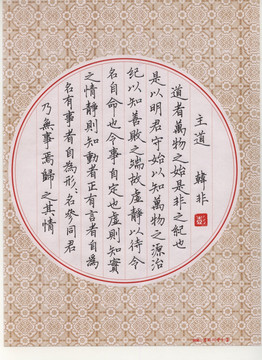 主道 韓非
道者萬物之始是非之紀也
是以明君守始以知萬物之源治
紀以知善敗之端故虛靜以待令
名自命也令事自定也虛則知實
之情靜則知動者正有言者自為
名有事者自為形〻名參同君
乃無事焉歸之其情
彭